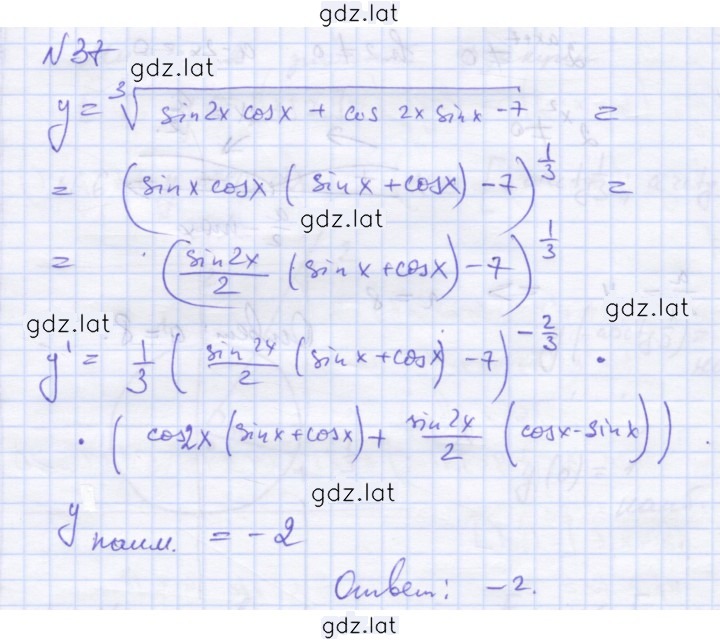 gdz.lat
N37
gdz.lat
y = ∛(sin2x cosx + cos 2x sinx - 7) =
= (sinx cosx (sinx + cosx) - 7)^(1/3) =
gdz.lat
= (sin2x/2 (sinx + cosx) - 7)^(1/3)
gdz.lat
gdz.lat
y' = 1/3 (sin2x/2 (sinx + cosx) - 7)^(-2/3) ·
· (cos2x (sinx + cosx) + sin2x/2 (cosx - sinx)).
gdz.lat
y наим. = -2
Ответ: -2.
gdz.lat